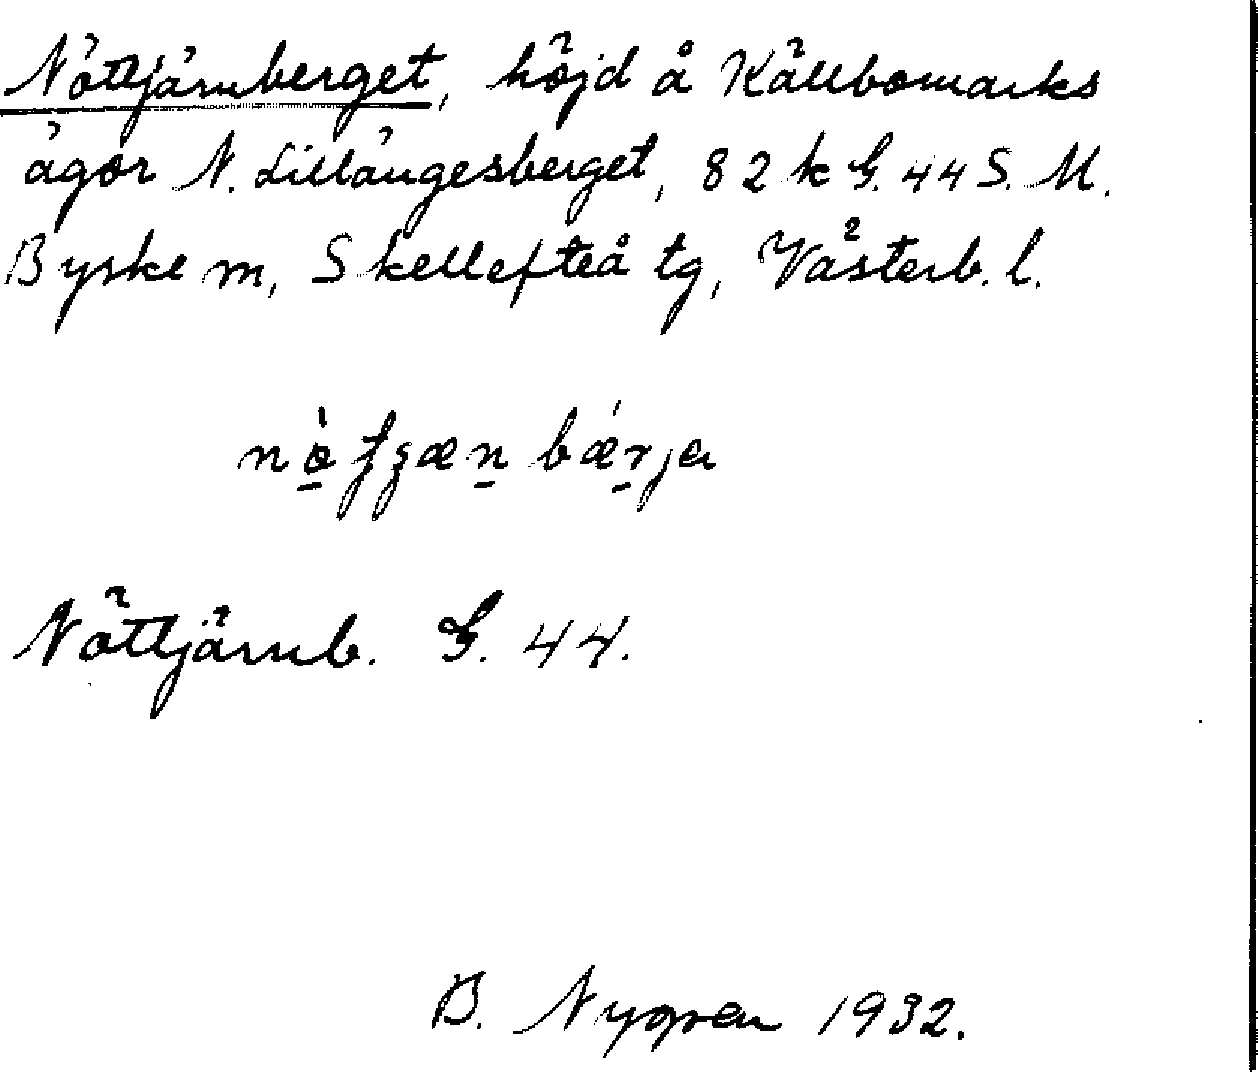 Nöttjärnberget, höjd å Källbomarks
ägor N. Lillängesberget, 82 k G. 44 S. M.
Byske m, Skellefteå tg, Västerb. l.
bærja
Nöttjärnb. G. 44.
B. Nygren 1932.